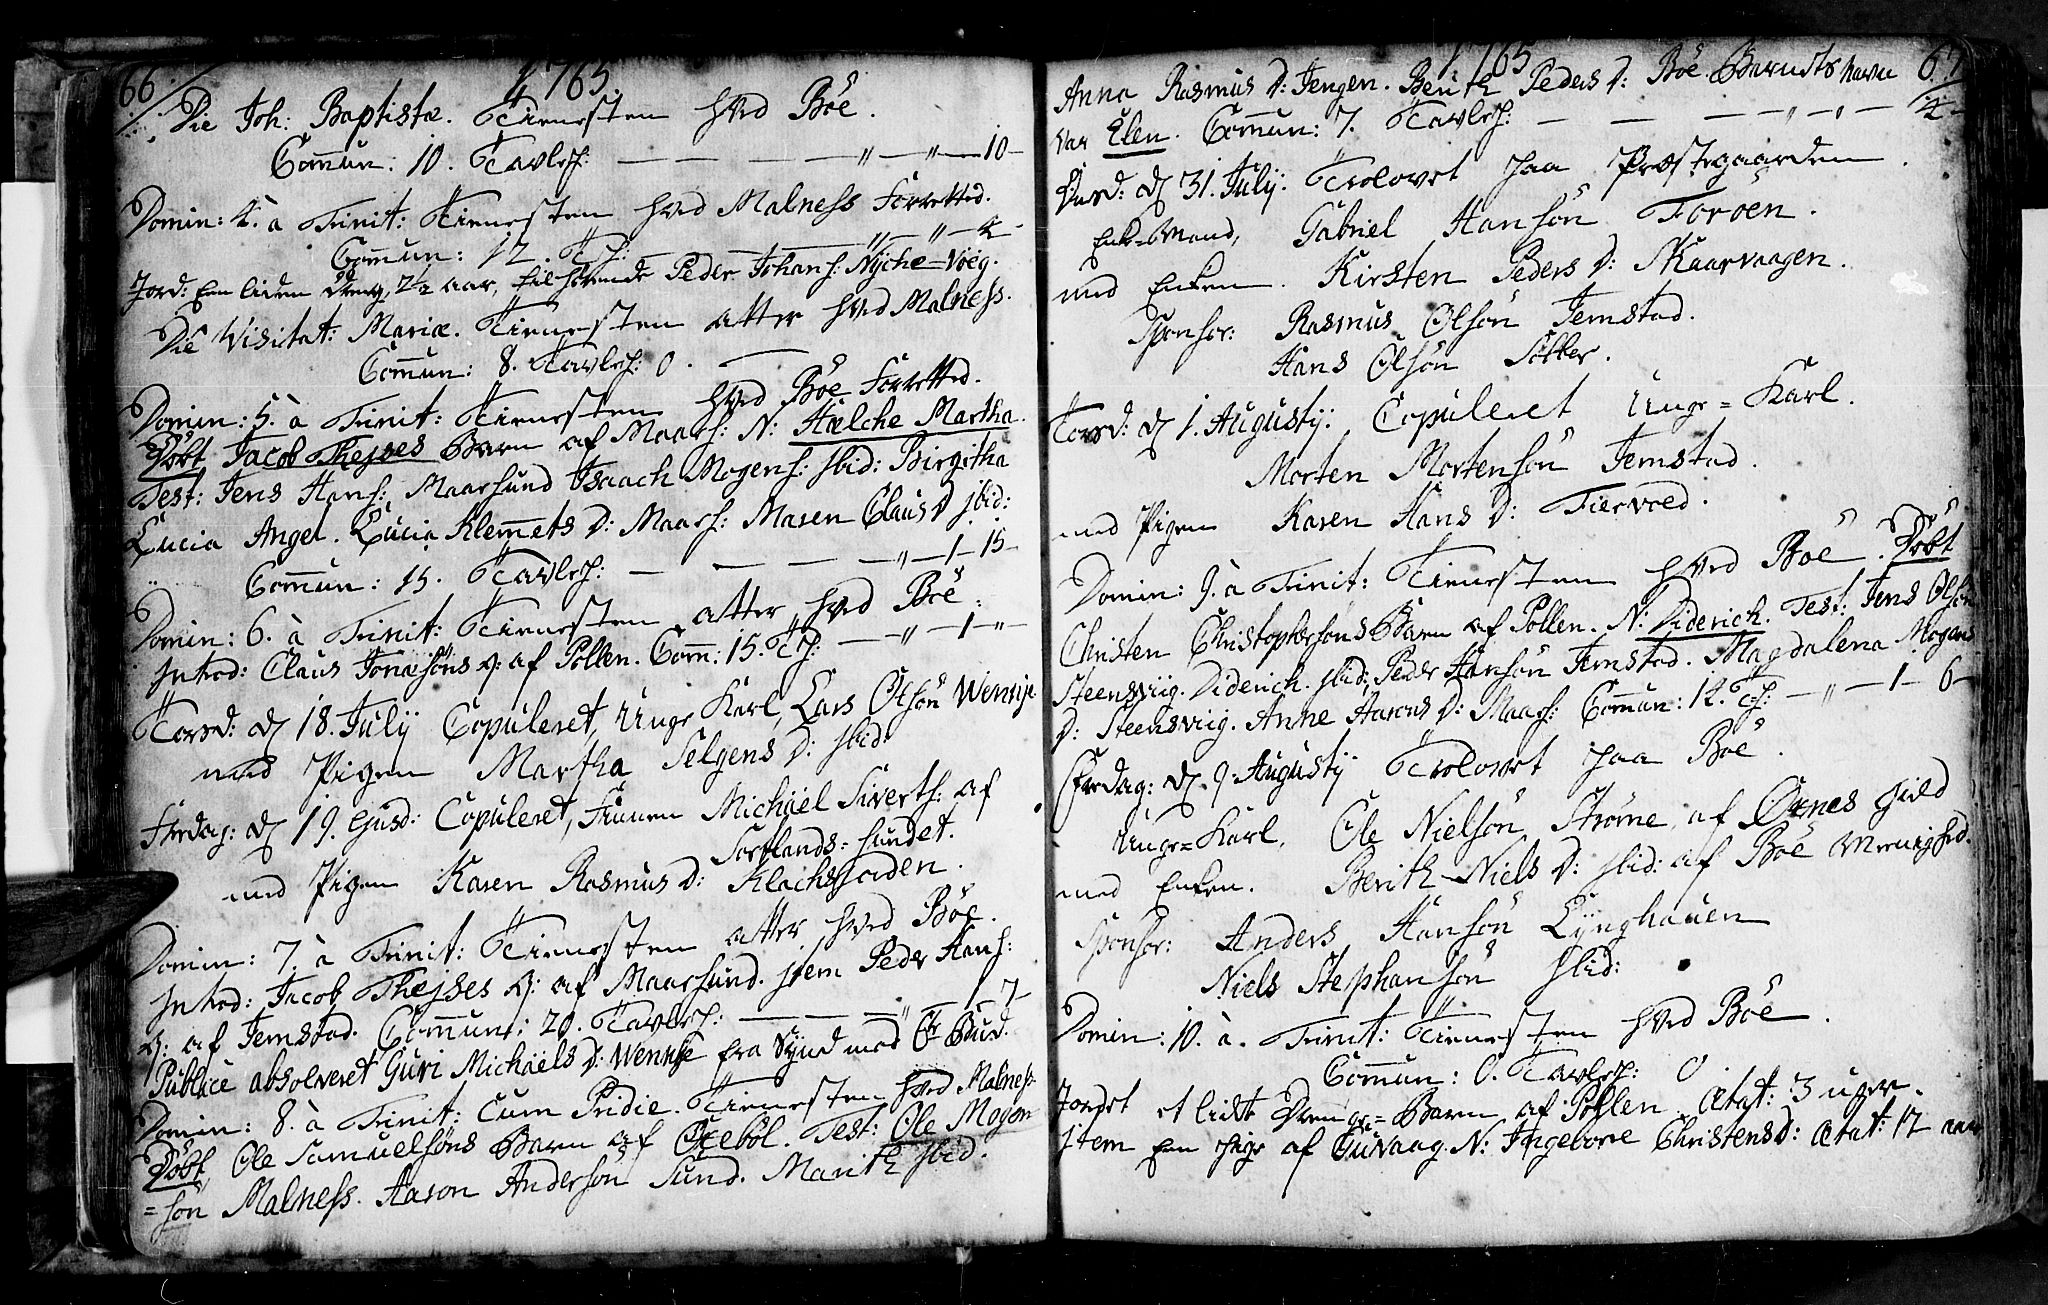 66
1765
Die Joh: Baptistæ. Tienesten hved Böe.
Com̄un: 10. Tavlep: — — — — " — " — 10 —
Domin: 4. à Trinit: Tienesten hved Malness Forrettet.
Com̄un: 12. Tp: " — " — 4 —
Jord: Een liden Dreng, 2½ aar, tilhörende Peder Johans: Nyche=Voeg.
Die Visitat: Mariæ. Tienesten atter hved Malness.
Com̄un: 8. Tavlep: 0. —
Domin: 5. à Trinit: Tienesten hved Böe Forrettet.
Döbt Jacob Thejses Barn af Maars: N: Hælche Martha.
Test: Jens Hans: Maarsund Isaach Mogens: ibid: Birgitha
Lucia Angel. Lucia Klem̄ets D: Maars: Maren Claus D ibid:
Com̄un: 15. Tavlep: — — — — " — 1 — 15 —
Domin: 6. à Trinit: Tienesten atter hved Böe.
Introd: Claus Jonæsöns Q: af Pollen. Com̄: 15. Tp: — " — 1 — " —
Torsd: d 18. July Copuleret, Unge Karl, Lars Olsön Wenige
med Pigen Martha Selgens D: ibid:
Fredag: d 19. Ejusd: Copuleret, Finnen Michäel Siverts: af
Sortlands=sundet.
med Pigen Karen Rasmus D: Klachsjorden.
Domin: 7. à Trinit: Tienesten atter hved Böe.
Introd: Jacob Thejses Q: af Maarsund. item Peder Hans:
Q: af Jemstad. Com̄un: 20. Tavlep: — — — " 1 7 —
Publice absolveret Guri Michäels D: Wennse fra Synd mod 6te Bud.
Domin: 8. à Trinit: Cum Pridie. Tienesten hved Malness.
Döbt, Ole Samuelsöns Barn af Oxeböl. Test: Ole Mogen
=sön Malness. Aaron Andersön Sund. Marith ibid.
1765
67
Anna Rasmus D: Jengen. Berith Peders D: Böe. Barnets Navn
var Elen. Com̄un: 7. Tavlep: — — — " — " — 4 —
Onsd: d 31. July. Trolovet paa Præstegaarden.
Enke=Mand, Gabriel Hansön Toröen.
med Enken. Kirsten Peders D: Skaarvaagen.
Sponsor: Rasmus Olsön Jemstad.
Hans Olsön Sötter.
Torsd: d 1. Augusty: Copuleret Unge=Karl.
Morten Mortensön Jemstad.
med Pigen Karen Hans D: Tiervoed.
Domin: 9. à Trinit: Tienesten hved Böe. Döbt
Christen Christophersöns Barn af Pollen. N: Diderich. Test: Jens Olsön
Steensviig. Diderich ibid: Peder Hansön Jemstad. Magdalena Mogens
D: Steensviig. Anne Aarons D: Maars: Com̄un: 12. Tp: — " — 1 — 6 —
Fredag: d. 9. Augusty Trolovet paa Böe.
Unge=Karl, Ole Nielsön Ströme, af Öxnes Gield
med Enken. Berith Niels D: ibid: af Böe Menighed.
Sponsor: Anders Hansön Lynghauen
Niels Stephansön ibid:
Domin: 10. à. Trinit: Tienesten hved Böe.
Com̄un: 0. Tavlep: 0
Jordet et lidet Drenge=Barn af Pollen. Ætat: 3 uger.
item Een Pige af Guvaag. N: Ingebore Christens D: Ætat: 17 aar